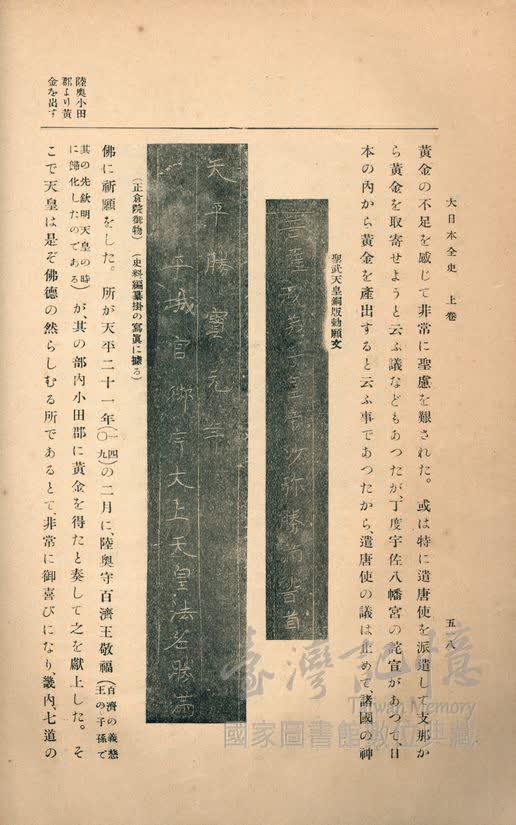 大日本全史 上卷
五一八
黃金の不足を感じて非常に聖慮を艱された。或は特に遣唐使を派遣して支那か
ら黃金を取寄せようと云ふ議などもあつたが、丁度宇佐八幡宮の詫宣があつて、日
本の內から黃金を產出すると云ふ事であつたから、遣唐使の議は止めて、諸國の神
聖武天皇銅版勅願文
菩薩戒弟子皇帝沙弥勝満稽首
天平勝寶元年
平城宮御宇太上天皇法名勝満
(正倉院御物) (史料編纂掛の寫眞に據る)
佛に祈願をした。所が天平二十一年(一四〇九)の二月に、陸奧守百濟王敬福(百濟の義慈王の子孫で
其の先欽明天皇の時に歸化したのである)が、其の部內小田郡に黃金を得たと奏して之を獻上した。そ
こで天皇は是ぞ佛德の然らしむる所であるとて、非常に御喜びになり、畿內、七道の
陸奧小田
郡より黃
金を出す
臺灣記憶
Taiwan Memory
國家圖書館數位典藏